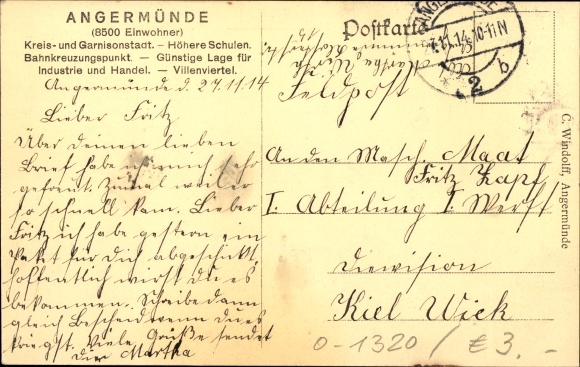 ANGERMÜNDE
(8500 Einwohner)
Kreis- und Garnisonstadt. — Höhere Schulen.
Bahnkreuzungspunkt. — Günstige Lage für
Industrie und Handel. — Villenviertel.
Angermünde d. 27.11.14
Lieber Fritz
Über deinen lieben
Brief habe mich sehr
gefreut. Zumal weil er
so schnell kam. Lieber
Fritz ich habe gestern ein
Paket für dich abgeschickt,
hoffentlich wirst du es
bekommen. Schreibe dann
gleich Bescheid wenn du es
kriegst. Viele Grüße sendet
dir Martha
Postkarte
Feldpost
An den Masch. Maat
Fritz Zapf
I. Abteilung I. Werft
Diewision
Kiel Wiek
11.14.10-11N
2 b
C. Windolff, Angermünde
0-1320 / € 3.-